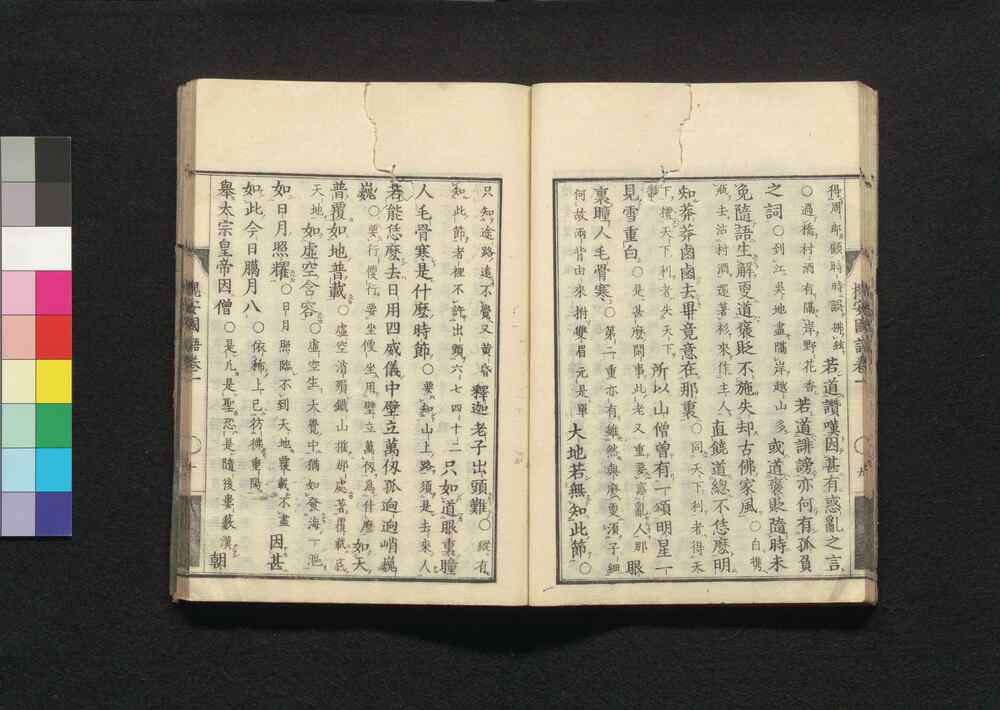 得周郎顧時時誤拂絃若道讚嘆因甚有惑亂之言
○過橋村酒有隔岸野花香若道誹謗亦何有孤負
之詞○到江吳地盡隔岸越山多或道褒貶隨時未
免隨語生解更道褒貶不施失却古佛家風○自携
瓶去沽村酒還著衫來作主人直饒道總不恁麽明
知莽莽鹵鹵去畢竟意在那裏○同天下利者得天
下擅天下利者失天下所以山僧曾有一頌明星一
見雪重白○是甚麽閑事此老又重要惑亂人那眼
裏瞳人毛骨寒○第二重亦有雖然與麽更須子細
何故兩背由來拊雙眉元是單大地若無知此節○
只知途路遠不覺又黄昏釋迦老子出頭難○縱有
知此節者裡不許出頭六七四十二只如道眼裏瞳
人毛骨寒是什麽時節○要知山上路須是去來人
若能恁麽去日用四威儀中壁立萬仭孤逈逈峭巍
巍○要行便行要坐便坐用壁立萬仭爲什麽如天
普覆如地普載○虛空消殞鐵山摧那處著覆載底
天地如虛空含容○虛空生大覺中猶如發海一漚
如日月照耀○日月照臨不到天地覆載不盡因甚
如此今日臘月八○依稀上已彷彿重陽
舉太宗皇帝因僧○是凡是聖恐是隨後婁藪漢朝
槐安國語卷一
九
槐安國語卷一
十